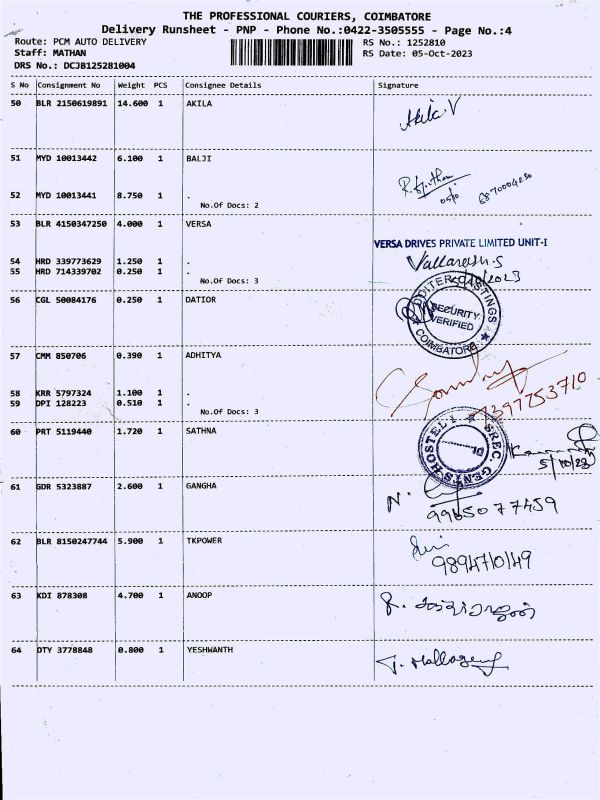 THE PROFESSIONAL COURIERS, COIMBATORE
Delivery Runsheet - PNP - Phone No.:0422-3505555 - Page No.:4
Route: PCM AUTO DELIVERY RS No.: 1252810
Staff: MATHAN RS Date: 05-Oct-2023
DRS No.: DCJB125281004
S No Consignment No Weight PCS Consignee Details Signature
50 BLR 2150619891 14.600 1 AKILA
Akila.V
51 MYD 10013442 6.100 1 BALJI
52 MYD 10013441 8.750 1 .
No.Of Docs: 2
53 BLR 4150347250 4.000 1 VERSA
VERSA DRIVES PRIVATE LIMITED UNIT-I
54 HRD 339773629 1.250 1 .
55 HRD 714339702 0.250 1 .
No.Of Docs: 3
56 CGL 50084176 0.250 1 DATIOR
SECURITY
VERIFIED
COIMBATORE
57 CMM 850706 0.390 1 ADHITYA
58 KRR 5797324 1.100 1 .
59 DPI 128223 0.510 1 .
No.Of Docs: 3
7397753710
60 PRT 5119440 1.720 1 SATHNA
SREC. GENTS HOSTEL
5/10/23
61 GDR 5323887 2.600 1 GANGHA
N.
9965077459
62 BLR 8150247744 5.900 1 TKPOWER
9894710149
63 KDI 878308 4.700 1 ANOOP
64 DTY 3778848 0.800 1 YESHWANTH